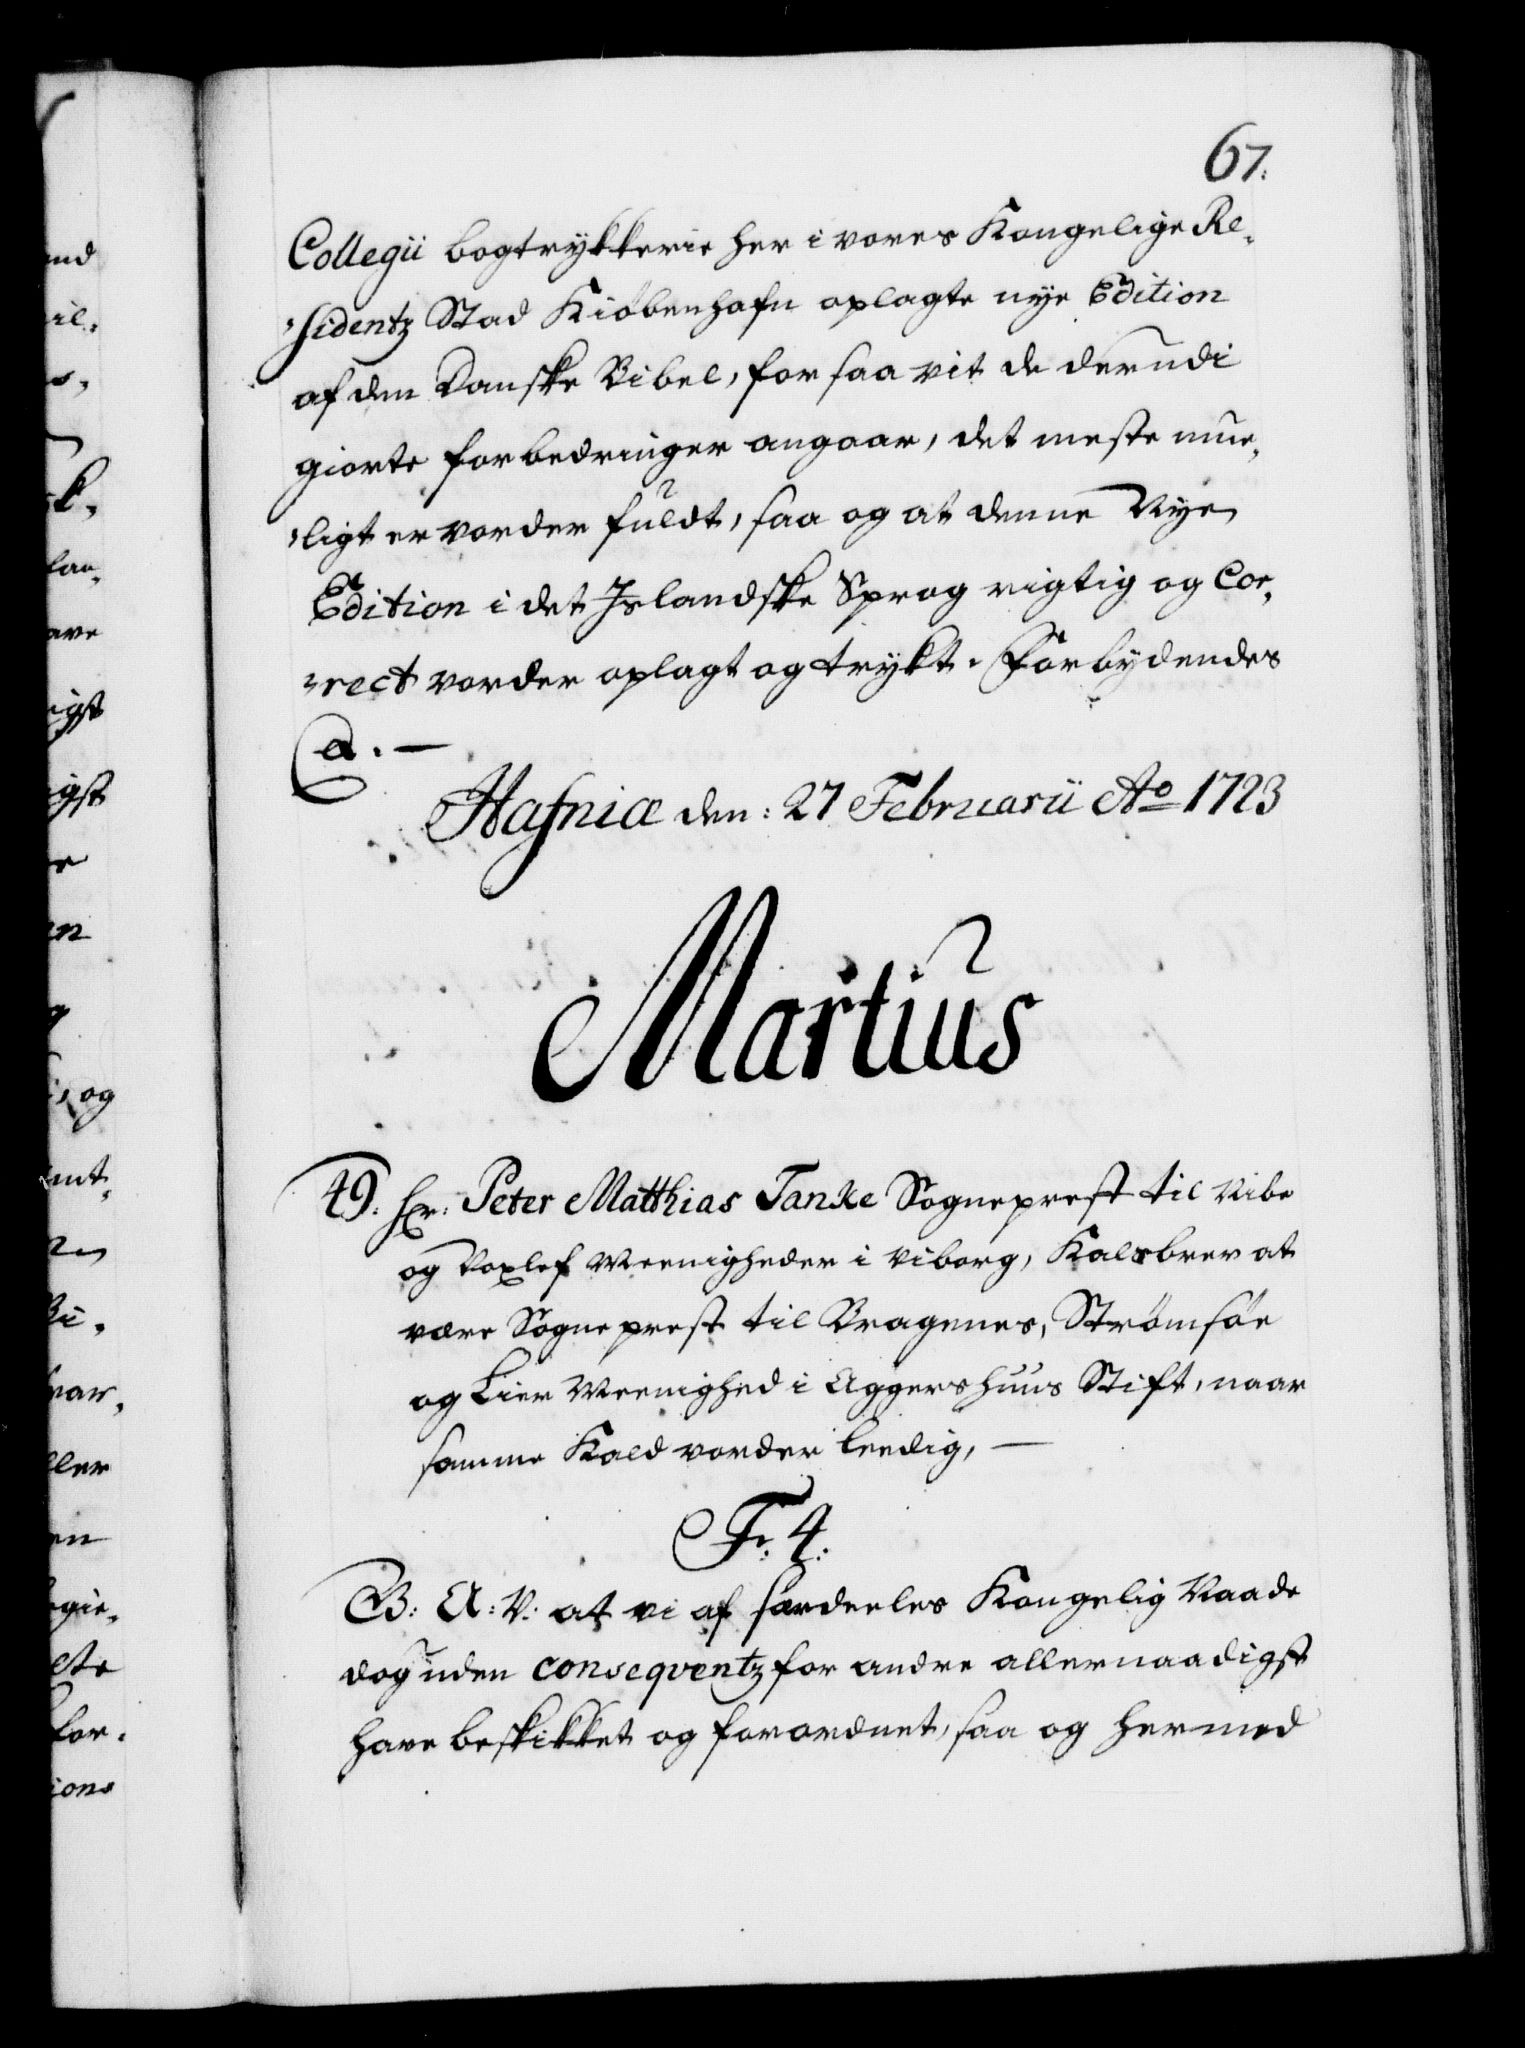 67.
Collegii bogtrykkerie her i vores Kongelige Re-
sidentz Stad Kiøbenhafn oplagte nye Edition
af den Danske Bibel, for saa vit de derudi
giorte forbedringer angaar, det meste mue-
ligt er vorder fuldt, saa og at denne Nye
Edition i det Islandske Sprog rigtig og Cor-
rect vorder oplagt og trykt. Forbydendes
&. —
Hafniæ den: 27 Februarii Ao 1723
Martius
49. Hr: Peter Matthias Tanke Sogneprest til Ribe
og Voxlef Meenigheder i Viborg, Kalsbrev at
være Sogneprest til Bragenes, Strømsøe
og Lier Meenighed i Aggershuus Stift, naar
samme Kald vorder leedig, —
Fr. 4.
G: A: V: at vi af særdeeles Kongelig Naade
dog uden conseqventz for andre allernaadigst
have beskikket og forordnet, saa og hermed
nd
il-
k-
lan-
ave
igst
igst
en
, og
mt-
Bi-
var-
ller
en
gie-
for-
ions